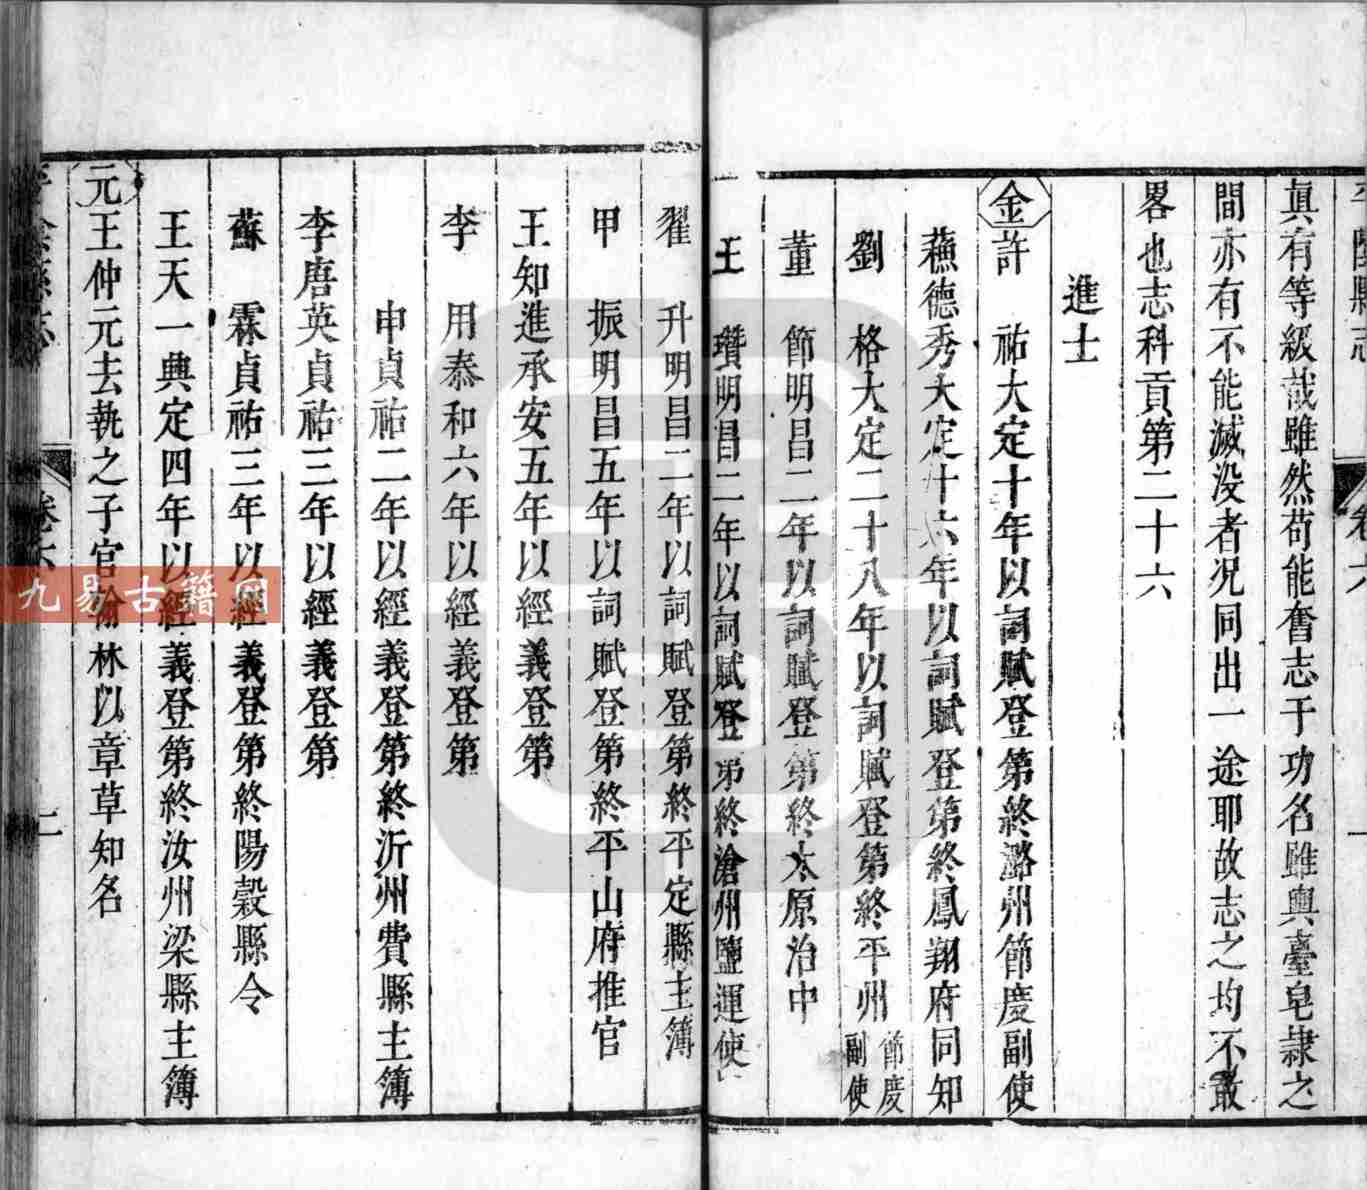 平陰縣志
卷六
一
真有等級哉雖然苟能奮志于功名雖輿臺皂隸之
間亦有不能滅没者况同出一途耶故志之均不敢
畧也志科貢第二十六
進士
金許　祐大定十年以詞賦登第終潞州節度副使
蘓德秀大定十六年以詞賦登第終鳳翔府同知
劉　格大定二十八年以詞賦登第終平州節度副使
董　節明昌二年以詞賦登第終太原治中
王　瓚明昌二年以詞賦登第終滄州鹽運使
翟　升明昌二年以詞賦登第終平定縣主簿
甲　振明昌五年以詞賦登第終平山府推官
王知進承安五年以經義登第
李　用泰和六年以經義登第
申貞祐二年以經義登第終沂州費縣主簿
李唐英貞祐三年以經義登第
蘇　霖貞祐三年以經義登第終陽穀縣令
王天一興定四年以經義登第終汝州梁縣主簿
元王仲元去執之子官翰林以章草知名
平陰縣志
卷六
二
九易古籍网